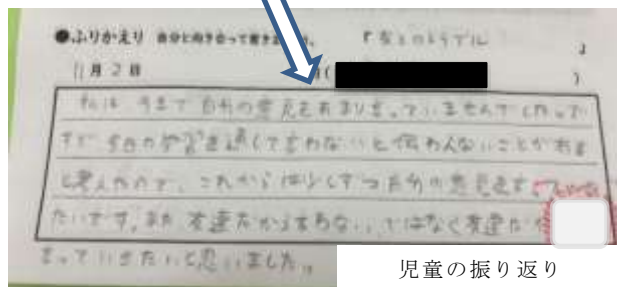 ●ふりかえり 自分と向き合って書きましょう。 『友とのトラブル 』
11月2日 ( )
私は今まで自分の意見をあまり言っていませんでした。で
すが今日の学習を通して言わないと伝わらないことがある
と思ったので、これからは少しずつ自分の意見を言っていき
たいです。また友達だから言わない、ではなく友達だから
言っていきたいと思いました。
児童の振り返り